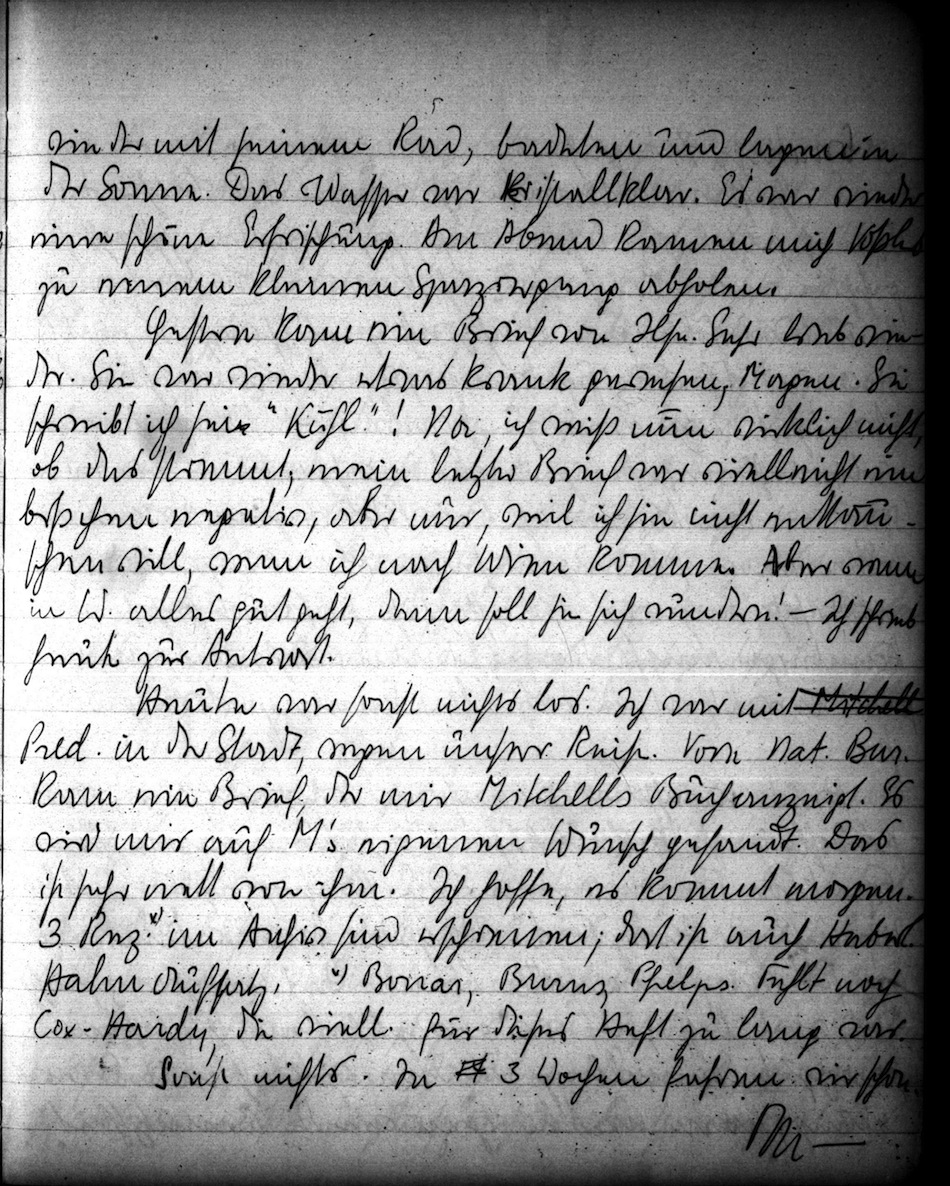 wieder mit seinem Rad, badeten und lagen in
der Sonne. Das Wasser war kristallklar. Es war wieder
eine schöne Erfrischung. Am Abend kamen mich
zu einem kleinen Spaziergang abholen.
Gestern kam ein Brief von Ilse. Sehr lieb wie-
der. Sie war wieder etwas krank gewesen, Magen. Sie
schreibt ich sei "Kühl"! Na, ich weiß nun wirklich nicht,
ob das stimmt; mein letzter Brief war vielleicht ein
bißchen negativ, aber nur, weil ich sie nicht enttäu-
schen will, wenn ich nach Wien komme. Aber wenn
in W. alles gut geht, dann soll sie sich wundern! — Ich schrieb
heute zur Antwort.
Heute war sonst nichts los. Ich war mit Mitchell
Pred. in der Stadt, wegen unserer Reise. Vom Nat. Bur.
kam ein Brief, der mir Mitchells Buch anzeigt. Es
wird mir auf M's eigenen Wunsch gesandt. Das
ist sehr nett von ihm. Ich hoffe, es kommt morgen.
3 Rez. x) im Archiv sind erschienen; dort ist auch Haberl.
Hahn Aufsatz. x) Bonar, Burns, Phelps. Fehlt noch
Cox-Hardy, die viell. für dieses Heft zu lang war.
Sonst nichts. In 3 Wochen fahren wir schon.